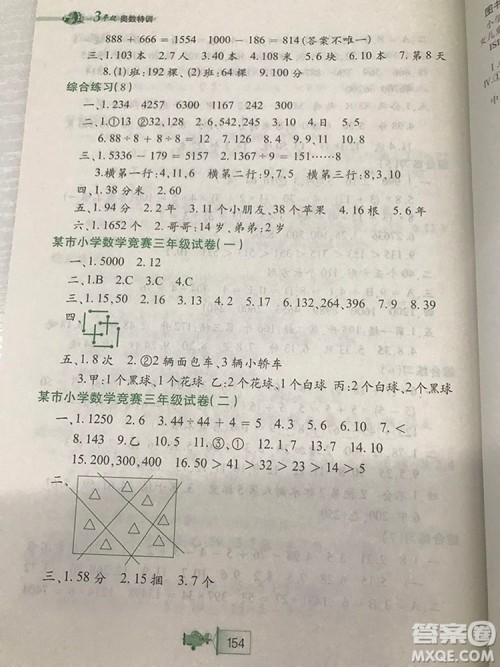 3年级 奥数特训
888+666=1554 1000-186=814(答案不唯一)
三、1.103本 2.7人 3.40本 4.108米 5.6块 6.10本 7.第8天
8.(1)班:192棵 (2)班:64棵 9.100分
综合练习(8)
一、1.234 4257 6300 1167 2.2200
二、1.①13②32 2.6,542,245 3.10 4.日 5.5
6.888÷8+8÷8=112
三、1.5336-179=5157 2.1367÷9=151……8
3.横第一行:4,11,6 横第二行:9,7,5 横第三行:8,3,10
四、1.38分米 2.60
五、1.94分 2.2年 3.11个小朋友,38个苹果 4.98米
六、1.1652个 2.哥哥:14岁,弟弟:2岁
某市小学数学竞赛三年级试卷(一)
一、1.5000 2.12
二、1.B 2.C 3.C 4.C
三、1.15,50 2.16 3.13 4.12 5.17 6.132,264,396 7.9 8.39
四、
五、1.8次 2.②2辆面包车、3辆小轿车
3.甲:1个黑球、1个白球 乙:2个黑球、1个白球 丙:2个白球、2个黑球
某市小学数学竞赛三年级试卷(二)
一、1.1250 2.7 3.44÷44+4=5 4.7 5.丙 6.50 7.<
8.143 9.乙 10.18 11.③,① 12.1 13.6 14.50
15.200,300,400 16.50>41>32>23>14>5
二、
三、1.58分 2.15捆 3.7个
154
图书
ISB
中
答案圈
MXQE.COM